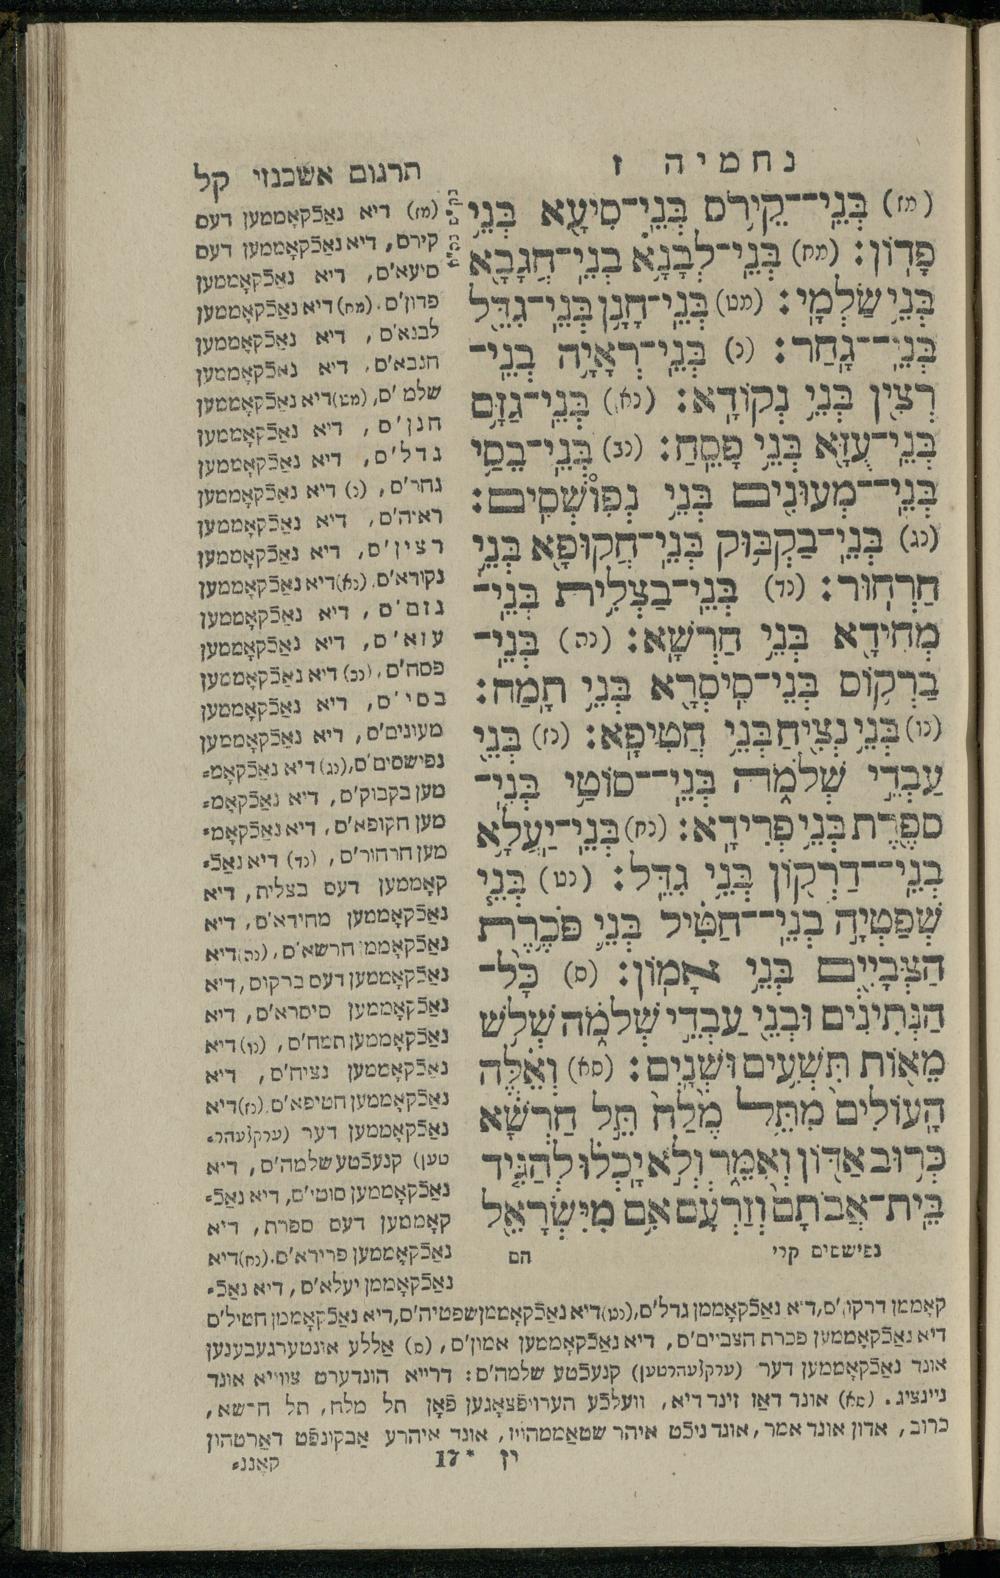 נחמיה ז
תרגום אשכנזי קל
(מז) בְּנֵי־קֵירֹס בְּנֵי־סִיעָא בְּנֵי
פָדוֹן׃ (מח) בְּנֵי־לְבָנָא בְנֵי־חֲגָבָא
בְּנֵי שַׁלְמָי׃ (מט) בְּנֵי־חָנָן בְּנֵי־גִדֵּל
בְּנֵי־גָחַר׃ (נ) בְּנֵי־רְאָיָה בְנֵי־
רְצִין בְּנֵי נְקוֹדָא׃ (נא) בְּנֵי־גַזָּם
בְּנֵי־עֻזָּא בְּנֵי פָסֵחַ׃ (נב) בְּנֵי־בֵסַי
בְּנֵי־מְעוּנִים בְּנֵי נְפוֹשְׁסִים׃
(נג) בְּנֵי־בַקְבּוּק בְּנֵי־חֲקוּפָא בְּנֵי
חַרְחוּר׃ (נד) בְּנֵי־בַצְלִית בְּנֵי־
מְחִידָא בְּנֵי חַרְשָׁא׃ (נה) בְּנֵי־
בַרְקוֹס בְּנֵי־סִיסְרָא בְּנֵי תָמַח׃
(נו) בְּנֵי נְצִיחַ בְּנֵי חֲטִיפָא׃ (נז) בְּנֵי
עַבְדֵי שְׁלֹמֹה בְּנֵי־סוֹטַי בְּנֵי־
סֹפֶרֶת בְּנֵי פְרִידָא׃ (נח) בְּנֵי־יַעְלָא
בְנֵי־דַרְקוֹן בְּנֵי גִדֵּל׃ (נט) בְּנֵי
שְׁפַטְיָה בְנֵי־חַטִּיל בְּנֵי פֹּכֶרֶת
הַצְּבָיִים בְּנֵי אָמוֹן׃ (ס) כָּל־
הַנְּתִינִים וּבְנֵי עַבְדֵי שְׁלֹמֹה שְׁלֹשׁ
מֵאוֹת תִּשְׁעִים וּשְׁנָיִם׃ (סא) וְאֵלֶּה
הָעוֹלִים מִתֵּל מֶלַח תֵּל חַרְשָׁא
כְּרוּב אַדּוֹן וְאִמֵּר וְלֹא יָכְלוּ לְהַגִּיד
בֵּית־אֲבֹתָם וְזַרְעָם אִם מִיִּשְׂרָאֵל
נפישסים קרי
הם
(מז) דיא נאַכֿקאָממען דעס
קירס, דיא נאַכֿקאָממען דעס
סיעא'ס, דיא נאַכֿקאָממען
פדון'ס. (מח) דיא נאַכֿקאָממען
לבנא'ס, דיא נאַכֿקאָממען
חגבא'ס, דיא נאַכֿקאָממען
שלמ'ס, (מט) דיא נאַכֿקאָממען
חנן'ס, דיא נאַכֿקאָממען
גדל'ס, דיא נאַכֿקאָממען
גחר'ס, (נ) דיא נאַכֿקאָממען
ראיה'ס, דיא נאַכֿקאָממען
רצין'ס, דיא נאַכֿקאָממען
נקורא'ס. (נא) דיא נאַכֿקאָממען
גזם'ס, דיא נאַכֿקאָממען
עזא'ס, דיא נאַכֿקאָממען
פסח'ס. (נב) דיא נאַכֿקאָממען
בסי'ס, דיא נאַכֿקאָממען
מעונים'ס, דיא נאַכֿקאָממען
נפישסים'ס, (נג) דיא נאַכֿקאָמ⸗
מען בקבוק'ס, דיא נאַכֿקאָמ⸗
מען חקופא'ס, דיא נאַכֿקאָמ⸗
מען חרחור'ס, (נד) דיא נאַכֿ⸗
קאָממען דעס בצלית, דיא
נאַכֿקאָממען מחידא'ס, דיא
נאַכֿקאָממן חרשא'ס, (נה) דיא
נאַכֿקאָממען דעס ברקוס, דיא
נאַכֿקאָממען סיסרא'ס, דיא
נאַכֿקאָממען תמח'ס, (נו) דיא
נאַכֿקאָממען נציח'ס, דיא
נאַכֿקאָממען חטיפא'ס. (נז) דיא
נאַכֿקאָממען דער (ערקלעהר⸗
טען) קנעכֿטע שלמה'ס, דיא
נאַכֿקאָממען סוטי'ס, דיא נאַכֿ⸗
קאָממען דעס ספרת, דיא
נאַכֿקאָממען פרירא'ס. (נח) דיא
נאַכֿקאָממן יעלא'ס, דיא נאַכֿ⸗
קאָממען דרקון'ס, דיא נאַכֿקאָממן גדל'ס, (נט) דיא נאַכֿקאָממן שפטיה'ס, דיא נאַכֿקאָממן חטיל'ס
דיא נאַכֿקאָממען פכרת הצביים'ס, דיא נאַכֿקאָממען אמון'ס, (ס) אַללע אונטערגעבענען
אונד נאַכֿקאָממען דער (ערקלעהרטען) קנעכֿטע שלמה'ס: דרייא הונדערט צווייא אונד
ניינציג. (סא) אונד דאַז זינד דיא, וועלכֿע הערויפֿצאָגען פֿאָן תל מלח, תל חרשא,
כרוב, אדון אונד אמר, אונד ניכֿט איהר שטאַממהויז, אונד איהרע אַבקונפֿט דאַרטהון
ין * 17
קאָננ⸗